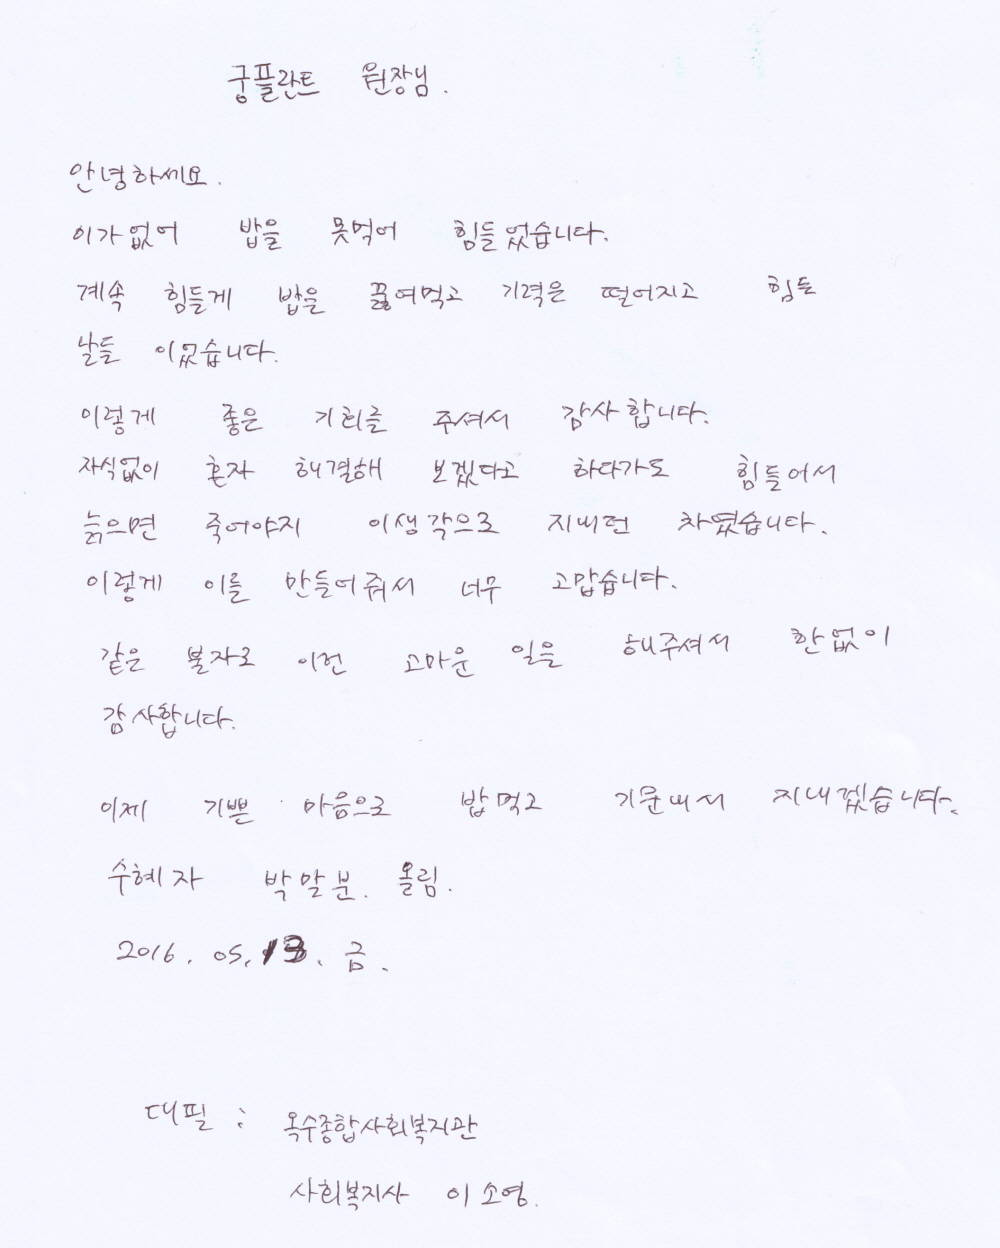 궁플란트 원장님.
안녕하세요.
이가없어 밥을 못먹어 힘들었습니다.
계속 힘들게 밥은 끓여먹고 기력은 떨어지고 힘든
날들 이였습니다.
이렇게 좋은 기회를 주셔서 감사합니다.
자식없이 혼자 해결해 보겠다고 하다가도 힘들어서
늙으면 죽어야지 이생각으로 지내던 차였습니다.
이렇게 이를 만들어줘서 너무 고맙습니다.
같은 불자로 이런 고마운 일을 해주셔서 한없이
감사합니다.
이제 기쁜 마음으로 밥먹고 기운내서 지내겠습니다.
수혜자 박말분. 올림.
2016. 05. 13. 금.
대필 : 옥수종합사회복지관
사회복지사 이소영.